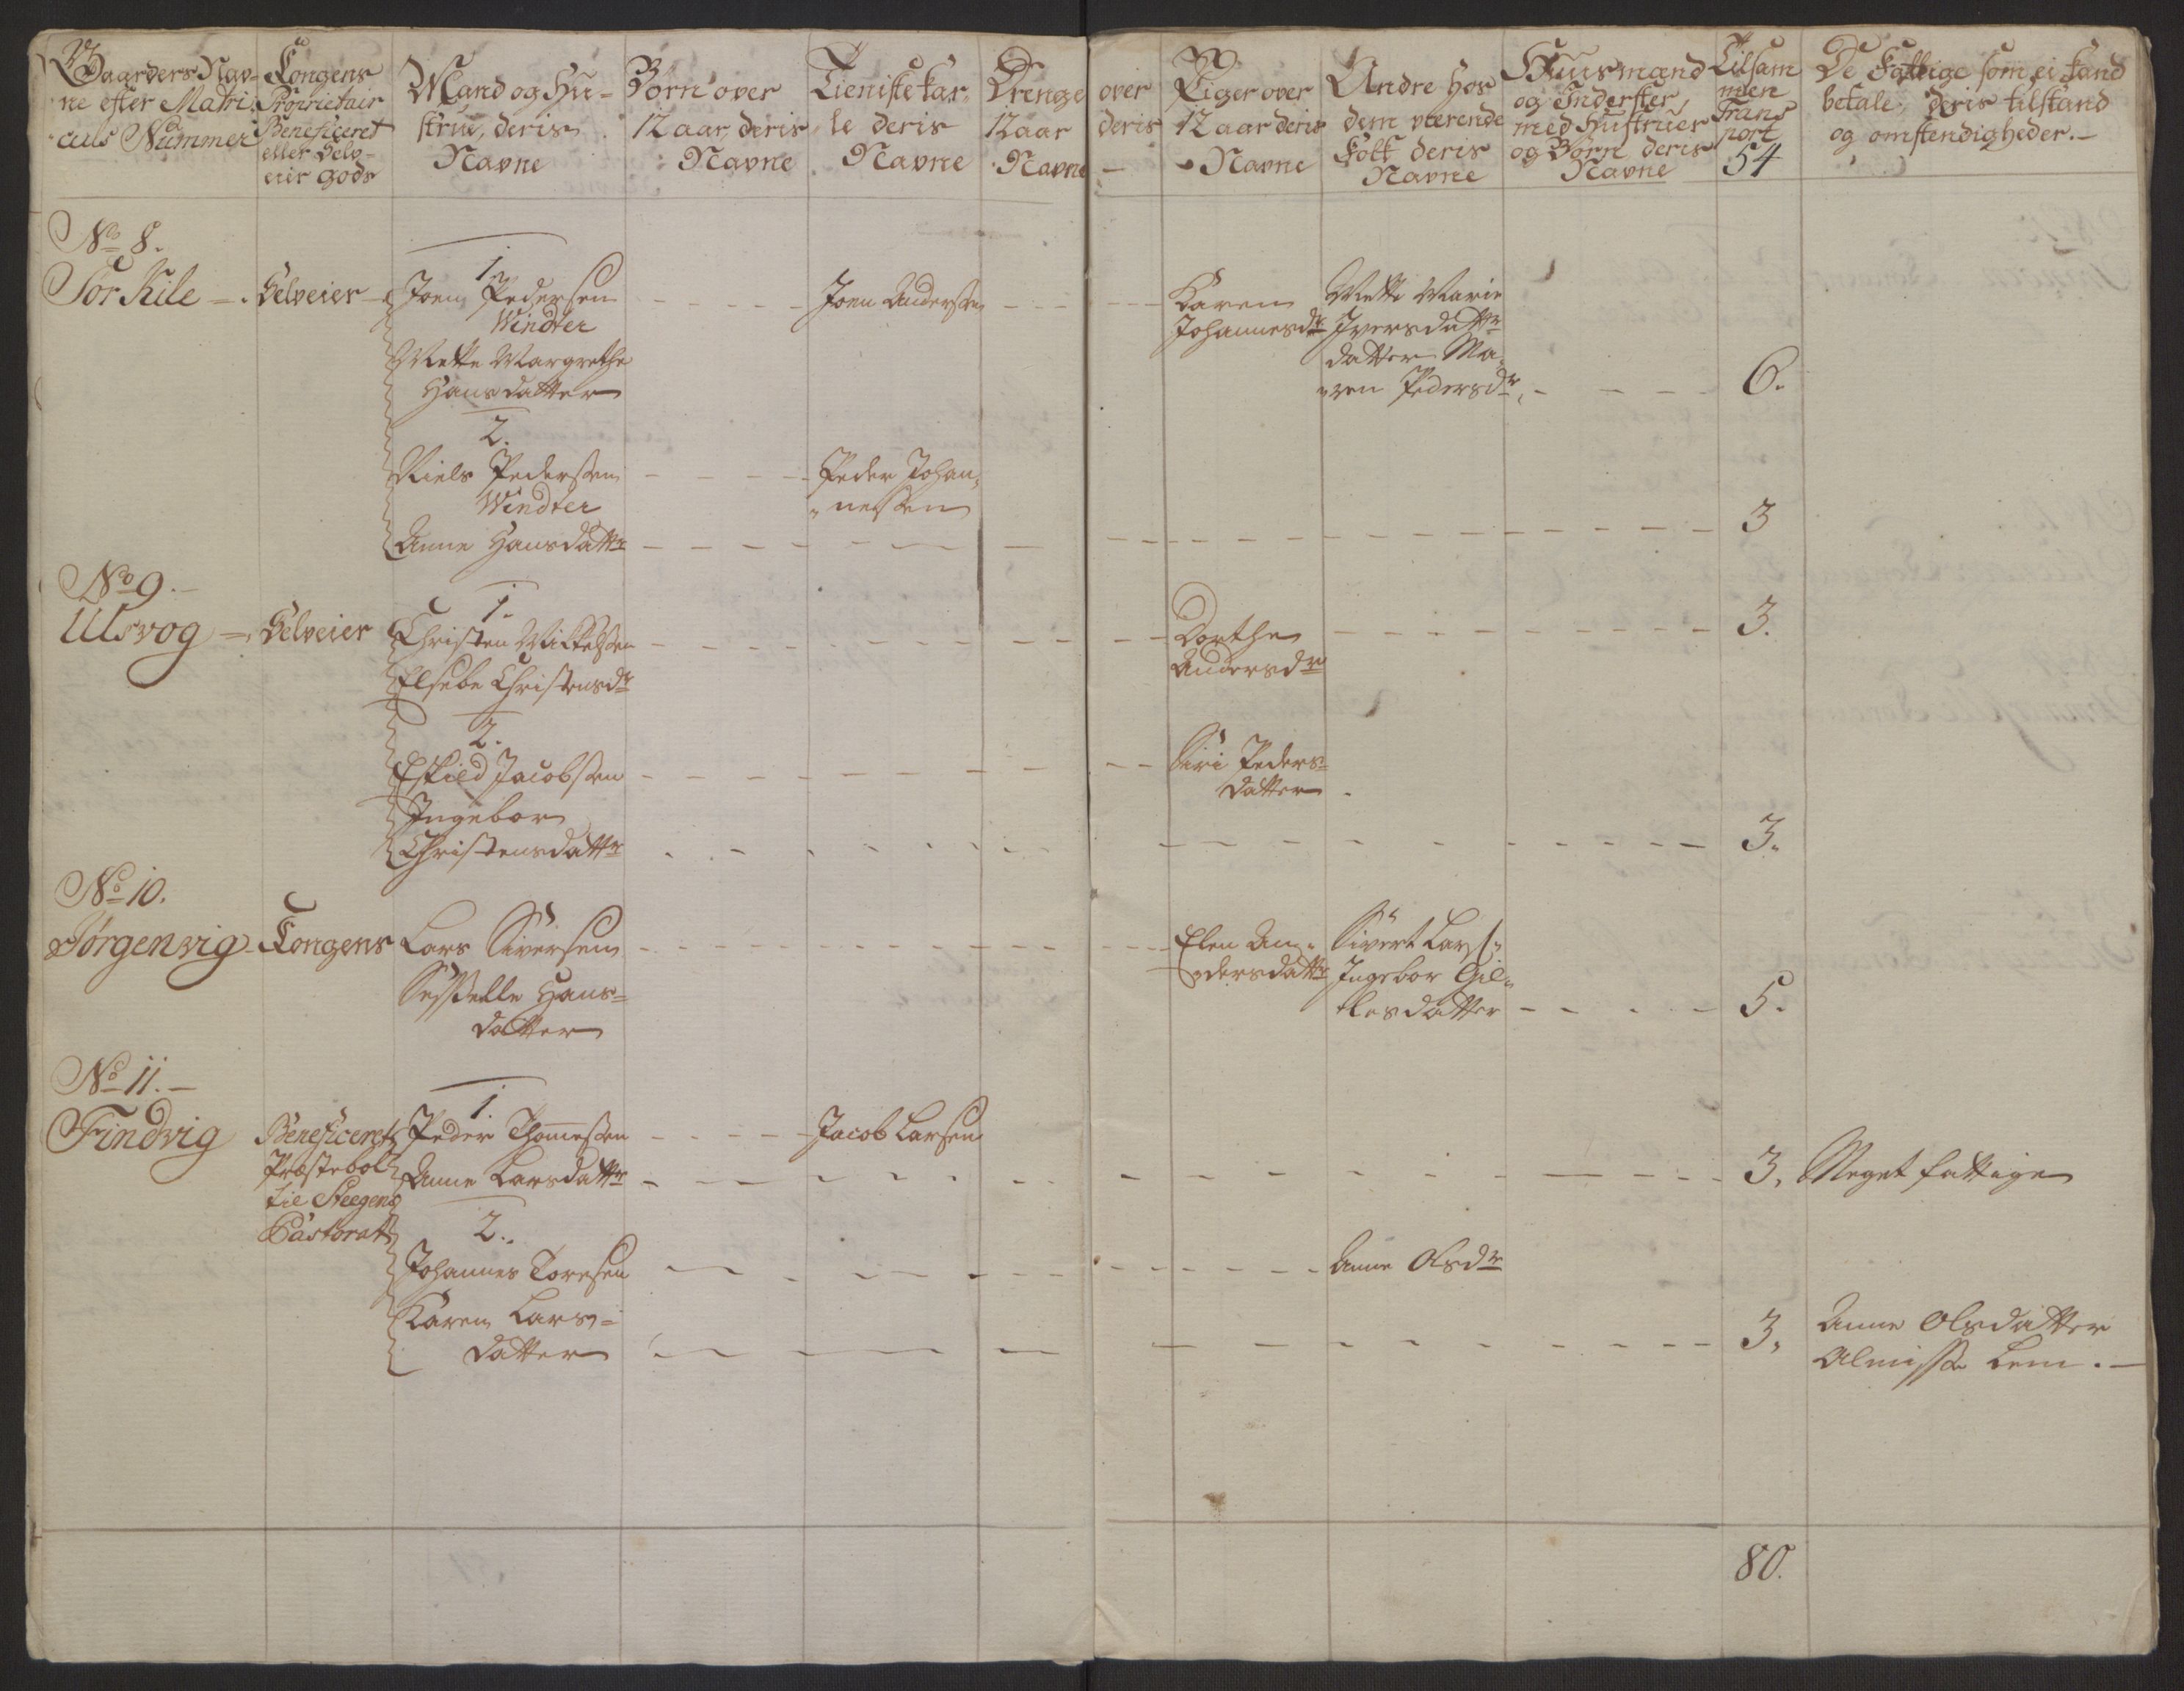 Gaarders Nav-
ne efter Matri-
culs Nummer
Kongens
Proprietair
Beneficeret
eller Selv-
eier gods
Mand og Hu-
strue, deris
Navne
Börn over
12 aar, deris
Navne
Tieniste kar-
le deris
Navne
Drenge over
12 aar deris
Navne –
Piger over
12 aar deris
Navne
Andre hos
dem værende
Folk deris
Navne
Huusmænd
og Inderster,
med Hustruer
og Börn deris
Navne
Tilsam
men
Trans
port
54
De Fattige som ei kand
betale, deris tilstand
og omstendigheder.–
No 8.
Sör Kile – Selveier
1.
Joen Pedersen
Windter
Mette Margrethe
Hansdatter
Joen Andersen
Karen
Johannesdr
Mette Marie
Iversdattr
datter Ma-
ren Pedersdr
6.
2.
Niels Pedersen
Windter
Anne Hansdattr
Peder Johan-
nesen
3
No 9.–
Ulsvog – Selveier
1.
Christen Mikkelsen
Elsebe Christensdr
Dorthe
Andersdr
3.
2.
Eskild Jacobsen
Ingebor
Christensdattr
Siri Peders-
datter
3.
No 10.
Jörgenvig – Kongens
Lars Siversen
Sisselle Hans-
datter
Elen An-
dersdattr
Sivert Lars:
Ingebor Gil-
lesdatter
5.
No 11.–
Findvig
Beneficeret
Præstebol
til Steegens
Pastorat
1.
Peder Thomesen
Anne Larsdattr
Jacob Larsen
3. Meget fattige
2.
Johannes Toresen
Karen Lars-
datter
Anne Olsdr
3.
Anne Olsdatter
Almisse Lem.–
80.